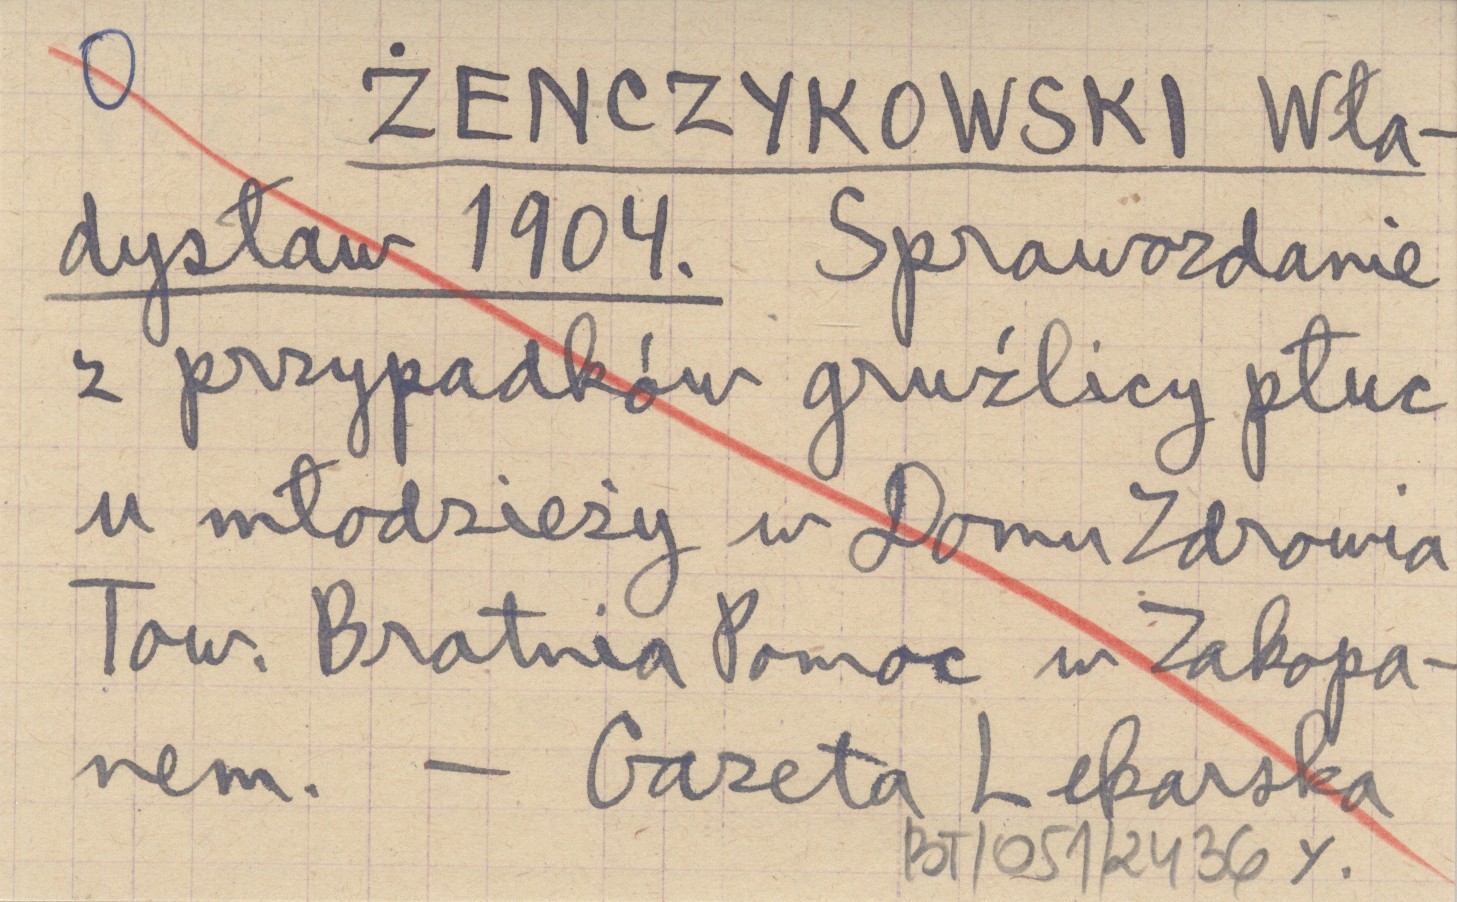 O ŻENCZYKOWSKI Wła-
dysław 1904. Sprawozdanie
z przypadków gruźlicy płuc
u młodzieży w Domu Zdrowia
Tow. Bratnia Pomoc w Zakopa-
nem. — Gazeta Lekarska
BT/051/2436 y.